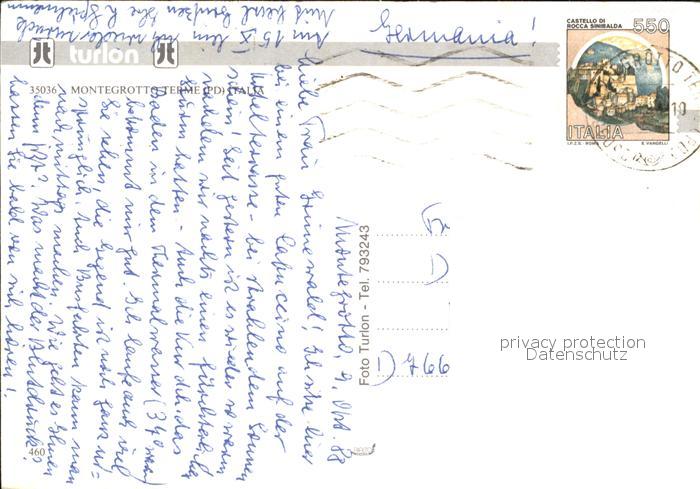 Germania!
CASTELLO DI
ROCCA SINIBALDA
550
ITALIA
I.P.Z.S. - ROMA
E. VANGELLI
10
turlon
35036 MONTEGROTTO TERME (PD) ITALIA
Foto Turlon - Tel. 793243
460
Montegrotto, 9. Okt. 88
Liebe Frau Grünewald! Ich sitze hier
bei einem guten Capuccino auf der
Hotelterrasse - bei strahlendem Sonnen
schein! Seit gestern ist es wieder so warm
nachdem wir nachts einen fürchterlichen
Sturm hatten - Auch die Kur d.h. das
Baden in dem Thermalwasser (34° warm)
bekommt mir gut. Ich laufe auch viel
Sie sehen, die Gegend ist noch ganz ur-
sprünglich. Auch Busfahrten kann man
nachmittags machen. Wie geht es Ihnen
denn Was macht der Blutdruck?
lassen Sie bald von sich hören!
Am 15. X. bin ich wieder zurück
Mit herzl. Grüssen Ihre
D 766
privacy protection
Datenschutz